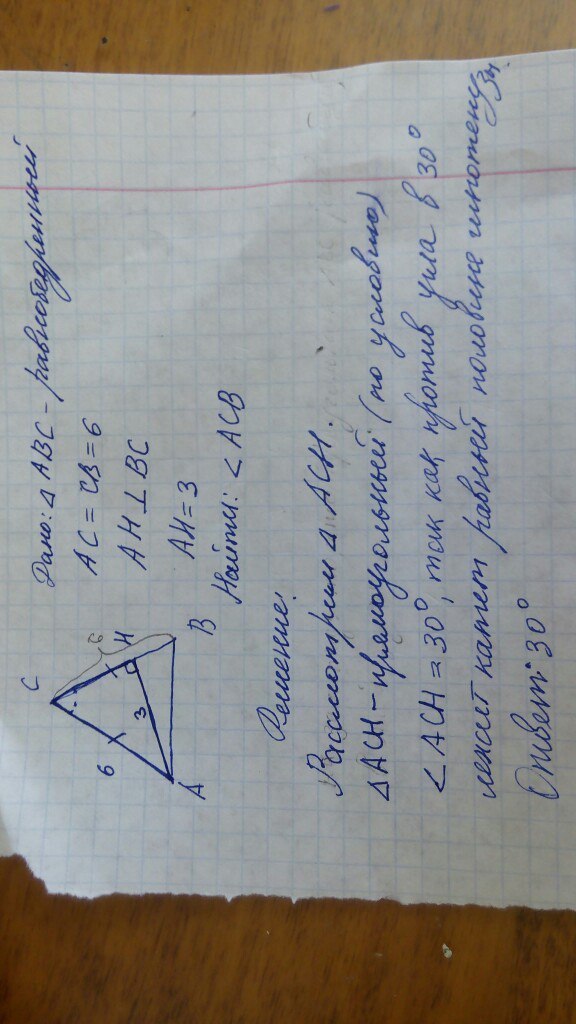 C
6
6
H
3
A
B
Дано: △ ABC - равнобедренный
AC = CB = 6
AH ⊥ BC
AH = 3
Найти: ∠ ACB
Решение:
Рассмотрим △ ACH.
△ ACH - прямоугольный (по условию)
∠ ACH = 30°, так как против угла в 30°
лежит катет равный половине гипотенузы.
Ответ: 30°